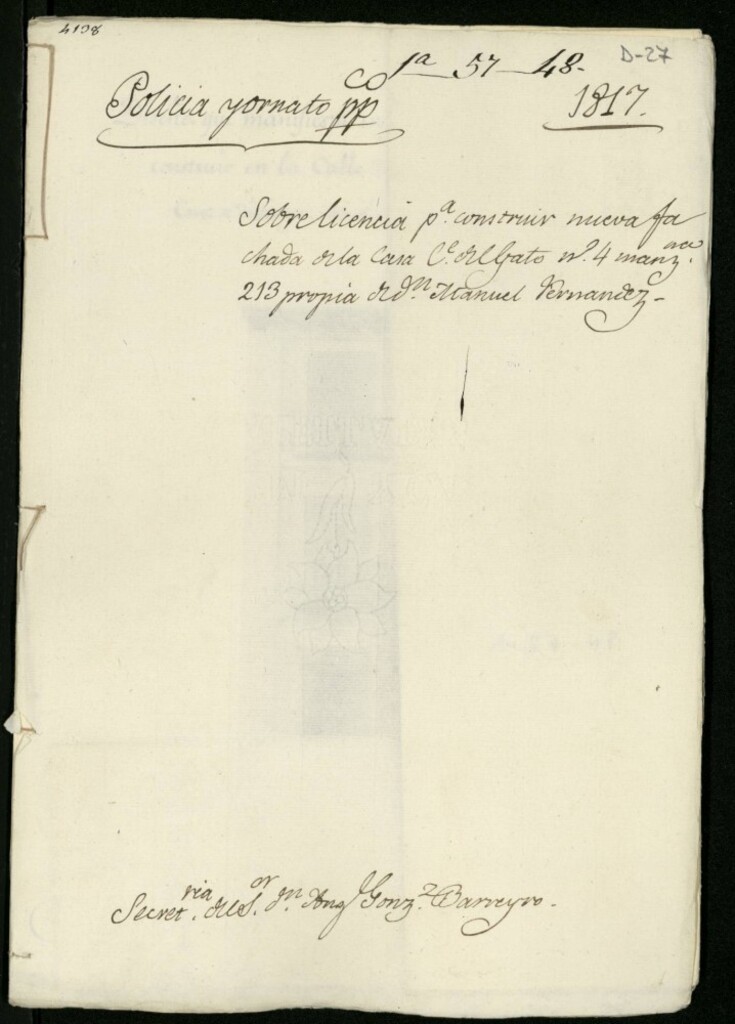 4198
1ª 57-48- D-27
Policia y ornato ppco 1817.
Sobre licencia pª. construir nueva fa
chada de la Casa C.e del Gato nº. 4 manz.na
213 propia de Dn. Manuel Fernandez-
Secretria. del Sor. dn. Angl Gonzz. Barreyro.